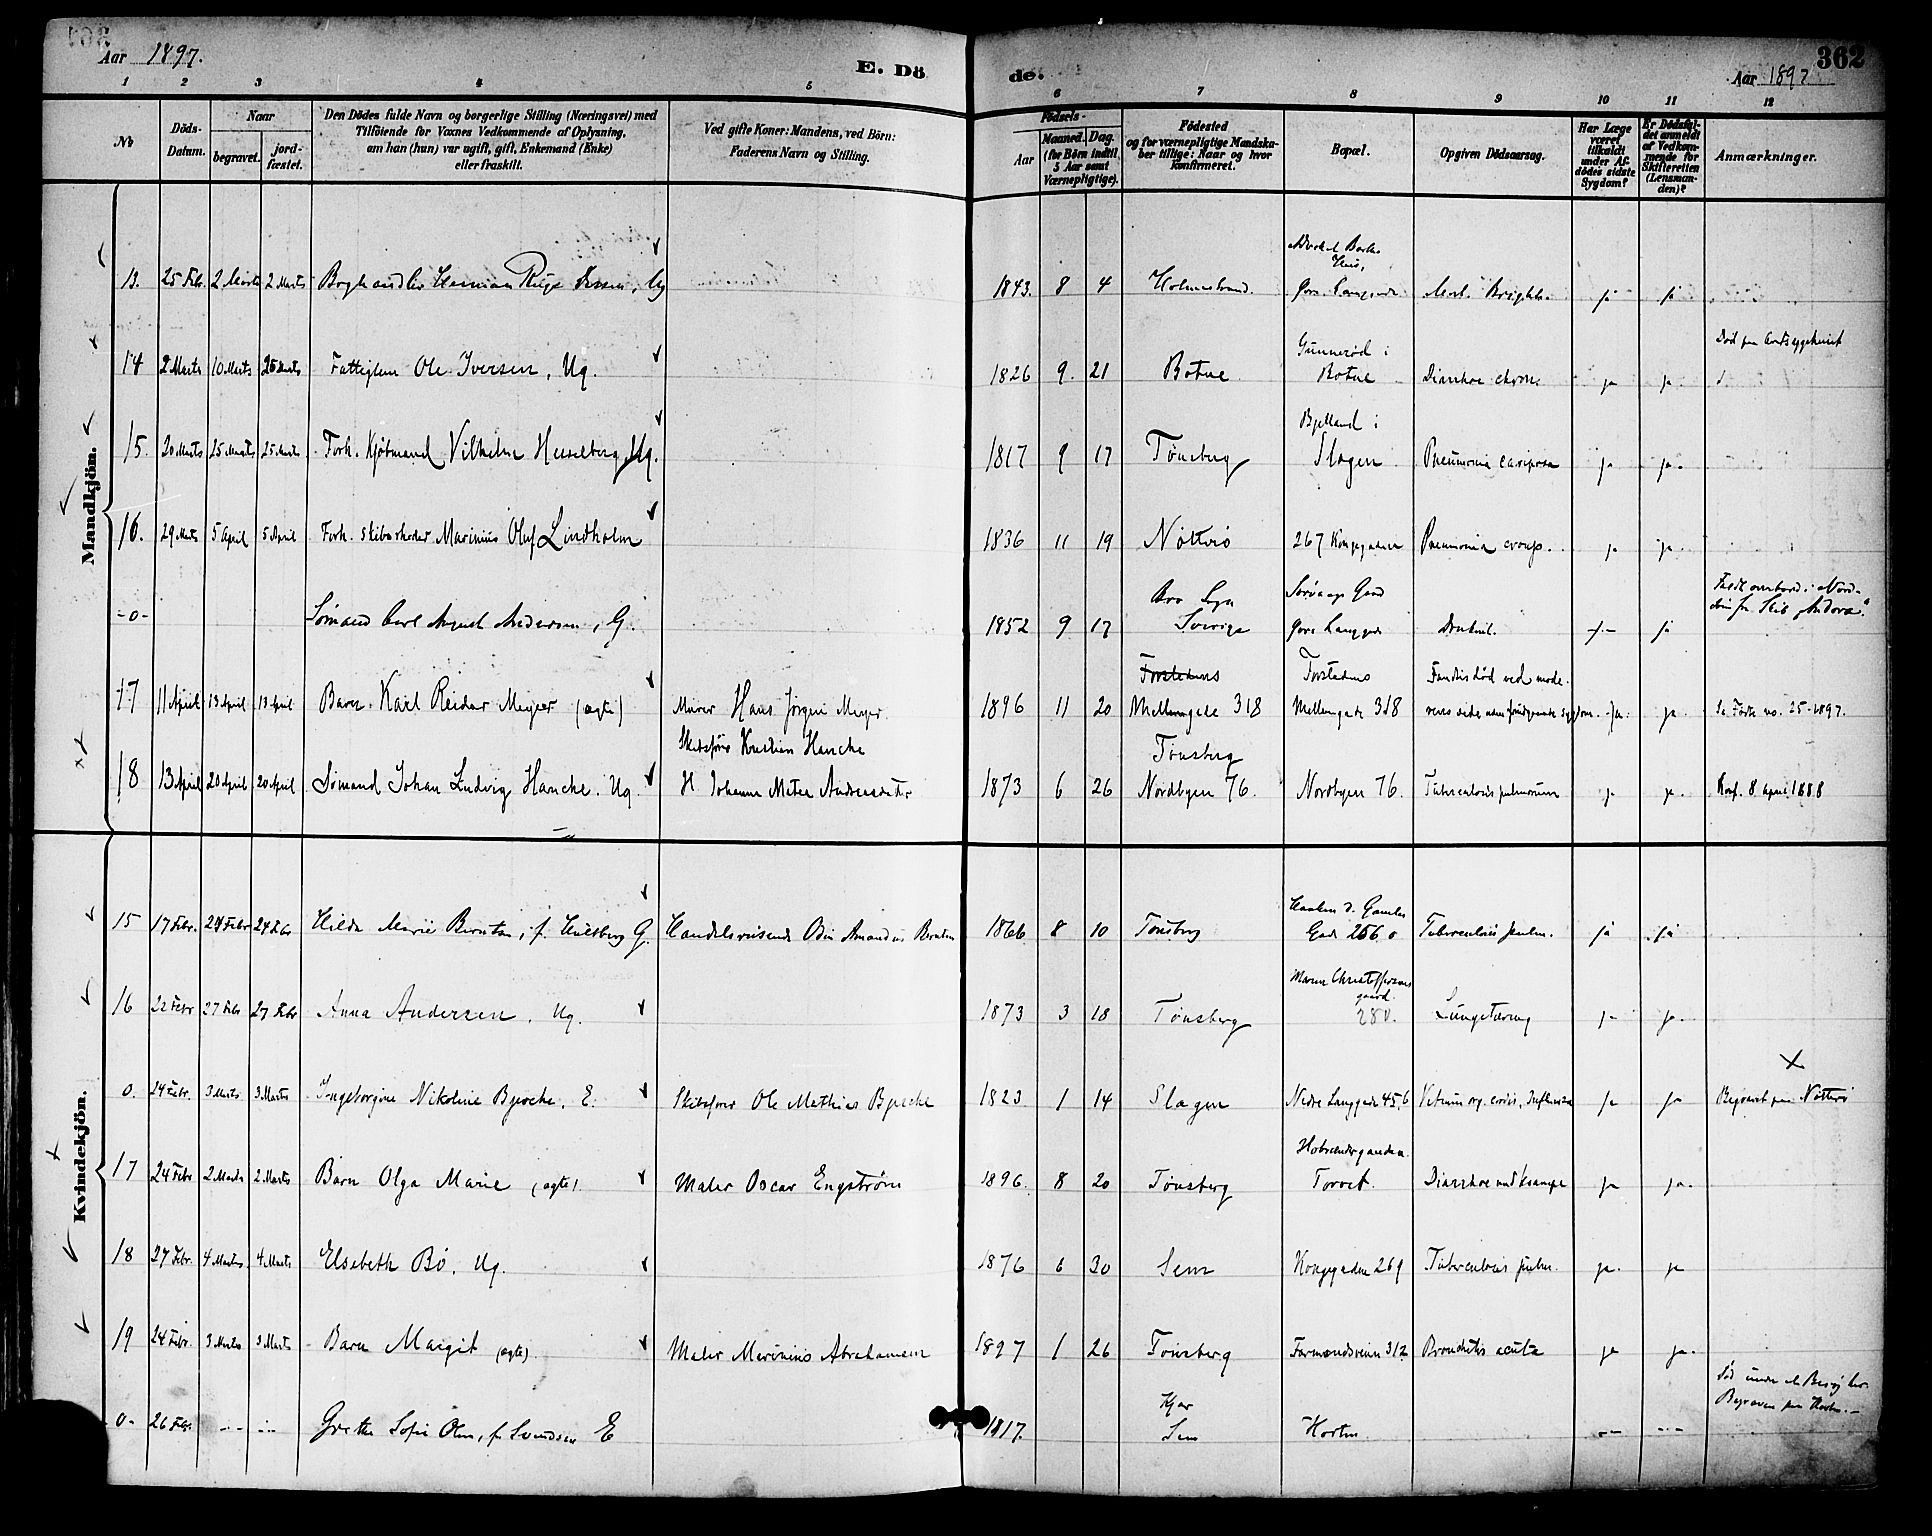 Aar 1897.
E. Dö
de.
362
Aar 1897
1 2 3 4 5 6 7 8 9 10 11 12
No
Döds-Datum.
Naar
begravet.
jord-fæstet.
Den Dödes fulde Navn og borgerlige Stilling (Næringsvei) med
Tilföiende for Voxnes Vedkommende af Oplysning,
om han (hun) var ugift, gift, Enkemand (Enke)
eller fraskilt.
Ved gifte Koner: Mandens, ved Börn:
Faderens Navn og Stilling.
Födsels-
Aar
Maaned. Dag.
(for Börn indtil
5 Aar samt
Værnepligtige).
Födested
og for værnepligtige Mandska-
ber tillige: Naar og hvor
konfirmeret.
Bopæl.
Opgiven Dödsaarsag.
Har Læge
været
tilkaldt
under Af-
dödes sidste
Sygdom?
Er Dödsfal-
det anmeldt
af Vedkom-
mende for
Skifteretten
(Lensman-
den)?
Anmærkninger.
Mandkjön.
13. 25 Febr. 2 Marts 2 Marts Boghandler Herman Ug 1843. 8 4 Holmestrand. Hus, ja ja
14 2 Marts 10 Marts Fattiglem Ole Iversen, Ug. 1826 9. 21 Botne Gunnerød i Botne Diarrhoe chron. ja ja Død paa
15. 20 Marts 25 Marts 25 Marts Forh. Kjøbmand Vilhelm Hesselberg, Ug. 1817 9 17 Tønsberg Bjelland i Slagen Pneumonia ja ja.
16. 29 Marts 5 April 5 April Forh. Skibsrheder Marinius Oluf Lindholm 1836 11 19 Nøtterø 267 Kongegaden Pneumonia croup. ja ja.
-o- Sømand Carl August Andersen, G. 1852 9 17 Sverige Gaard Druknet. -/- ja Faldt overbord i Nord-
søen fra Skib "Andora"
17 11 April 13 April 13 April Barn Karl Reidar Meyer (ægte) Murer Hans Jørgen Meyer. 1896 11 20 Mellemgade 318 Mellemgade 318 Fandtes død ved mode-
rens side uden forudgaaende sygdom. ja. Se Fødte no. 25-1897.
18 13 April 20 April 20 April Sømand Johan Ludvig Hancke. Ug. Skibsfører Kristian Hancke
H. Johanne Matea 1873 6 26 Tønsberg
Nordbyen 76. Nordbyen 76. Tuberculosis pulmonum ja ja. Konf. 8 april 1888
Kvindekjön.
15 17 Febr. 24 Febr 24 Febr Hilda Marie Berntsen, f. G. Handelsreisende Odin Amandus Berntsen 1866 8 10 Tønsberg Gade 256 Tuberculosis pulm. ja ja
16 22 Febr 27 Febr 27 Febr Anna Andersen, Ug. 1873 3 18 Tønsberg Maren Christoffersens
gaard. 280. Lungetæring ja ja.
0. 24 Febr. 3 Marts 3 Marts Ingeborgine Nikoline Bjerche, E. Skibsfører Ole Mathias Bjerche 1823 1 14 Slagen Nedre Langgade 45,6 Vitium org. cordis, Influenza ja ja Begravet paa Nøtterø
17 24 Febr 2 Marts 2 Marts Barn Olga Marie (ægte). Maler Oscar Engstrøm 1896. 8 20 Tønsberg Torvet. Diarrhoe med Krampe ja ja.
18 27 Febr. 4 Marts 4 Marts Elsebeth Bö, Ug. 1876 6 30 Sem Kongegaden 269 Tuberculosis pulm. ja. ja
19 24 Febr. 3 Marts 3 Marts Barn Margit (ægte). Maler Marinius Abrahamsen 1897 1 26 Tønsberg Farmandsveien 312 Bronchitis acuta ja ja.
-0- 26 Febr. Grethe Sofie Olsen, f. Svendsen E 1817. Sem Horten Død under et Besøg her.
Begraven paa Horten.